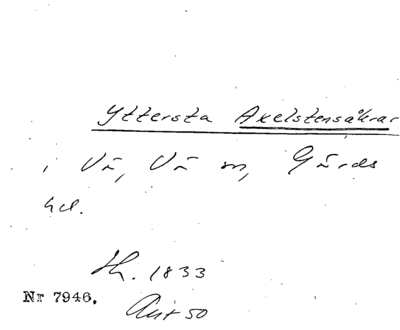 Yttersta Axelstensåkrar
i Vä, Vä sn, Gärds
hd.
Sk. 1833
Nr 7946.
Akt 50